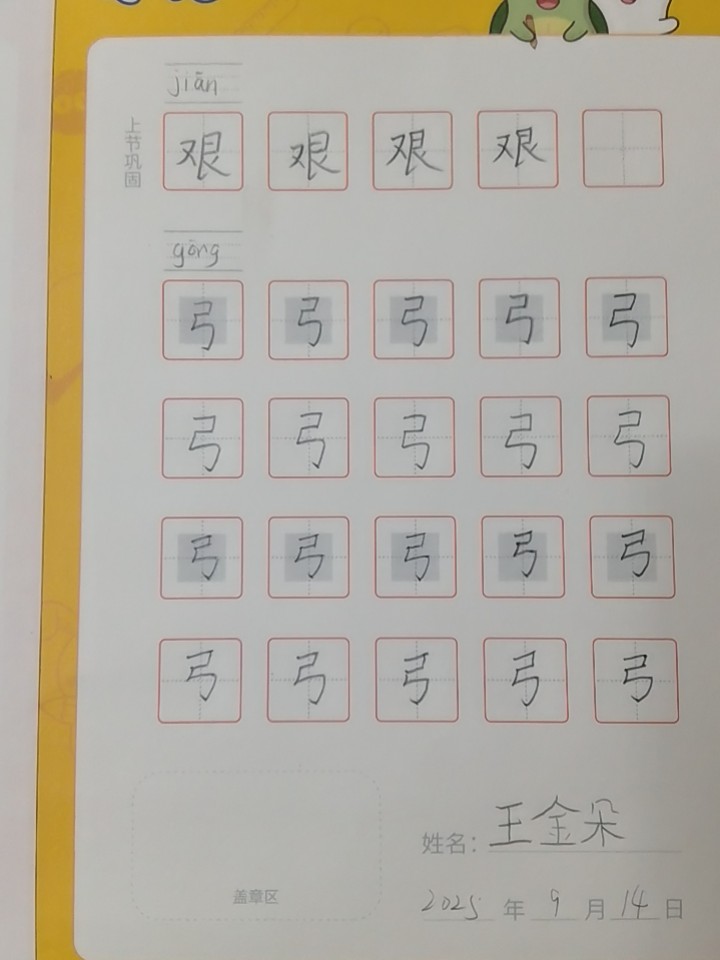 jiān
上节巩固
艰 艰 艰 艰
gōng
弓 弓 弓 弓 弓
弓 弓 弓 弓 弓
弓 弓 弓 弓 弓
弓 弓 弓 弓 弓
姓名：王金朵
盖章区
2025 年 9 月 14 日